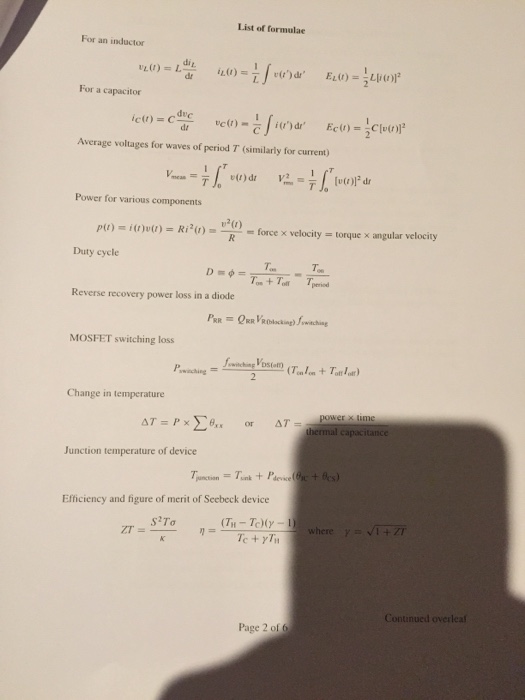 List of formulae
For an inductor
v_L(t) = L di_L/dt   i_L(t) = 1/L ∫ v(t') dt'   E_L(t) = 1/2 L[i(t)]²
For a capacitor
i_C(t) = C dv_C/dt   v_C(t) = 1/C ∫ i(t') dt'   E_C(t) = 1/2 C[v(t)]²
Average voltages for waves of period T (similarly for current)
V_mean = 1/T ∫₀ᵀ v(t) dt   V²_rms = 1/T ∫₀ᵀ [v(t)]² dt
Power for various components
p(t) = i(t)v(t) = Ri²(t) = v²(t)/R = force × velocity = torque × angular velocity
Duty cycle
D = ϕ = T_on/(T_on + T_off) = T_on/T_period
Reverse recovery power loss in a diode
P_RR = Q_RR V_R(blocking) f_switching
MOSFET switching loss
P_switching = f_switching V_DS(off)/2 (T_on I_on + T_off I_off)
Change in temperature
ΔT = P × ∑ θ_xx   or   ΔT = power × time/thermal capacitance
Junction temperature of device
T_junction = T_sink + P_device(θ_JC + θ_CS)
Efficiency and figure of merit of Seebeck device
ZT = S²Tσ/κ   η = (T_H − T_C)(γ − 1)/(T_C + γT_H)   where γ = √(1 + ZT)
Continued overleaf
Page 2 of 6